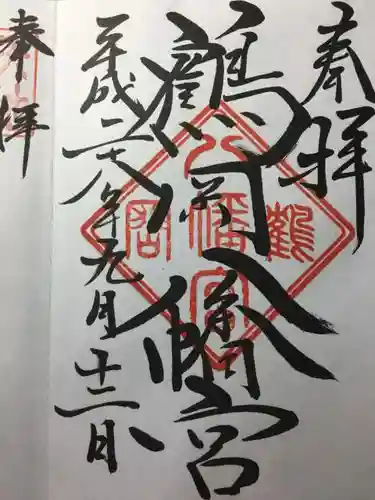 奉拝
鶴岡八幡宮
平成二十八年九月十二日
奉拝
鶴岡八幡宮